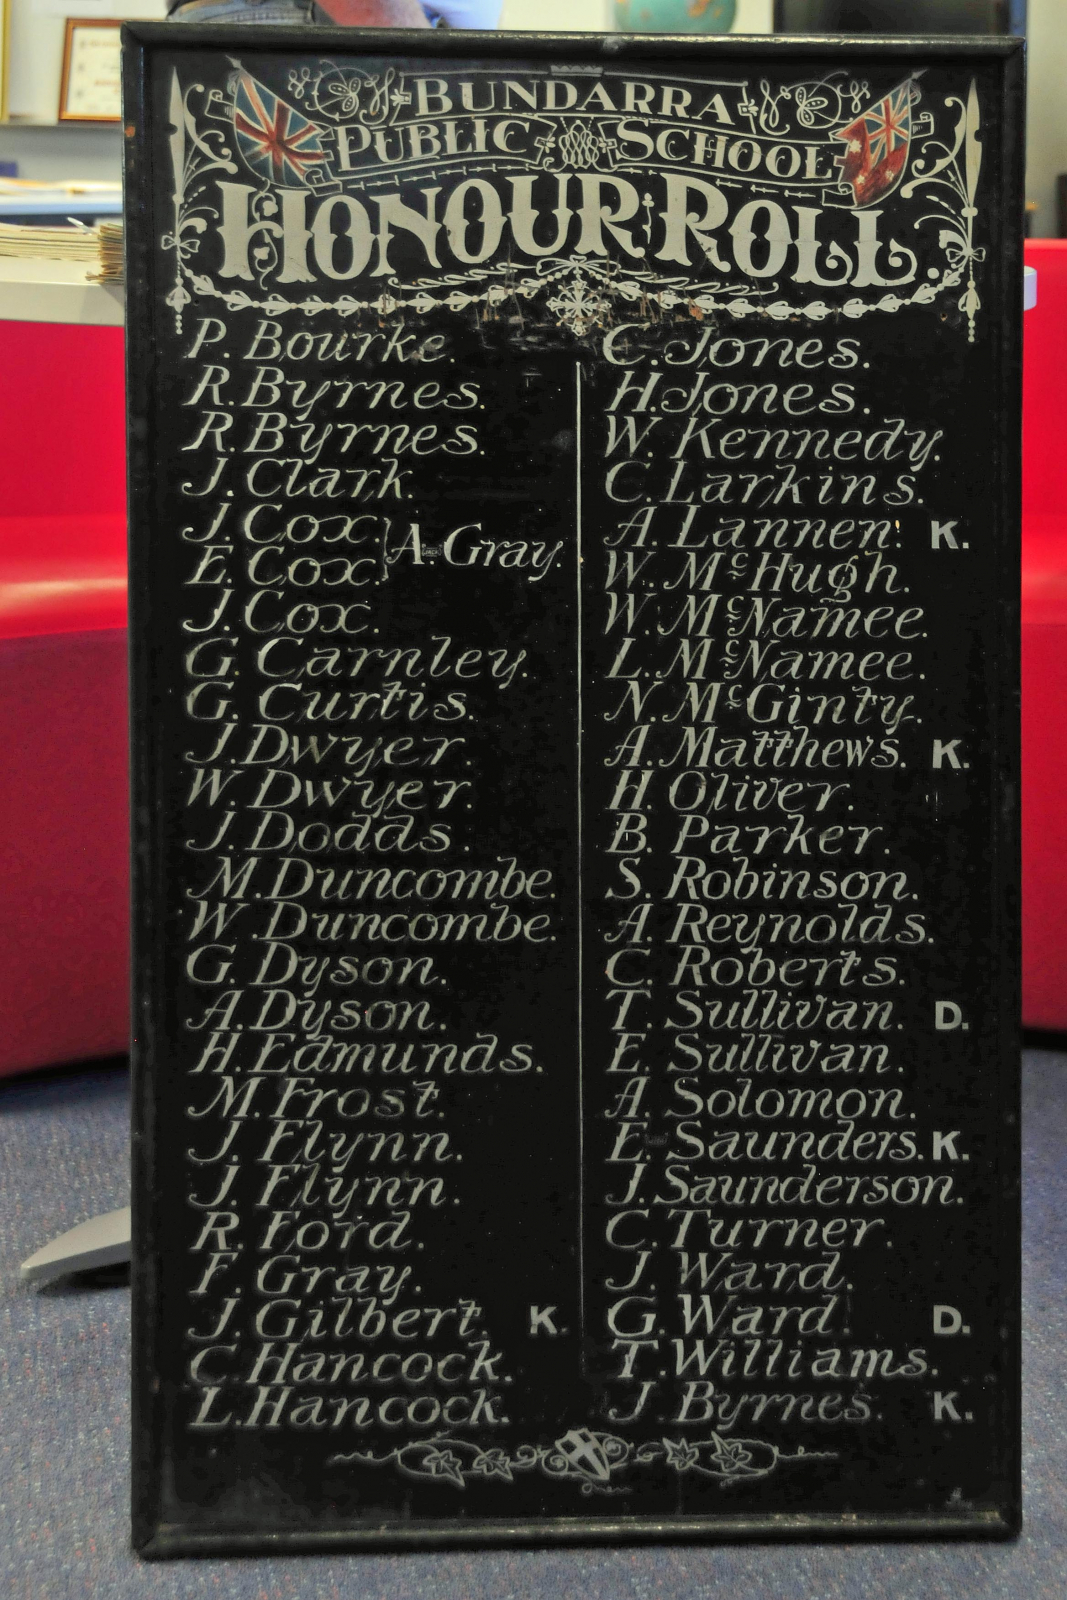 BUNDARRA
PUBLIC SCHOOL
HONOUR ROLL.
P. Bourke.
R. Byrnes.
R. Byrnes.
J. Clark.
J. Cox.
E. Cox.
A. Gray.
J. Cox.
G. Carnley.
G. Curtis.
J. Dwyer.
W. Dwyer.
J. Dodds.
M. Duncombe.
W. Duncombe.
G. Dyson.
A. Dyson.
H. Edmunds.
M. Frost.
J. Flynn.
J. Flynn.
R. Ford.
F. Gray.
J. Gilbert. K.
C. Hancock.
L. Hancock.
C. Jones.
H. Jones.
W. Kennedy.
C. Larkins.
A. Lannen. K.
W. McHugh.
W. McNamee.
L. McNamee.
N. McGinty.
A. Matthews. K.
H. Oliver.
B. Parker.
S. Robinson.
A. Reynolds.
C. Roberts.
T. Sullivan. D.
E. Sullivan.
A. Solomon.
E. Saunders. K.
J. Saunderson.
C. Turner.
J. Ward.
G. Ward. D.
T. Williams.
J. Byrnes. K.